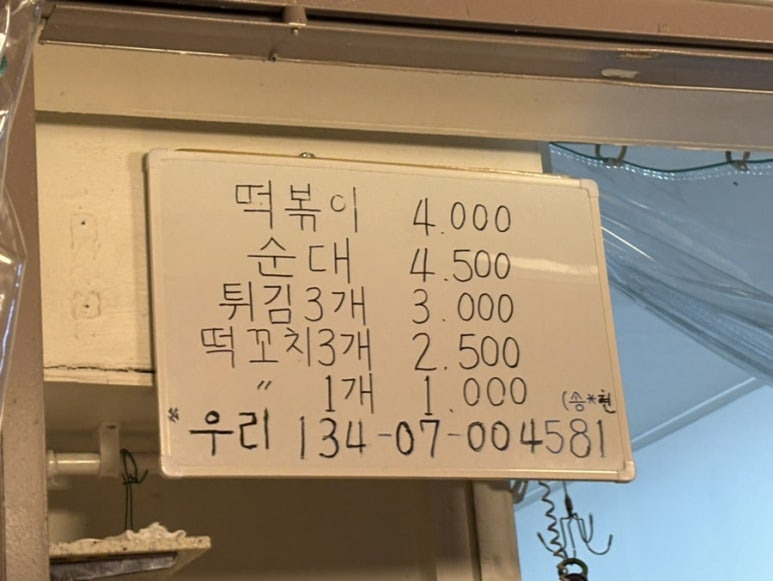 떡볶이 4.000
순대 4.500
튀김3개 3.000
떡꼬치3개 2.500
〃 1개 1.000 (송*현
※ 우리 134-07-004581